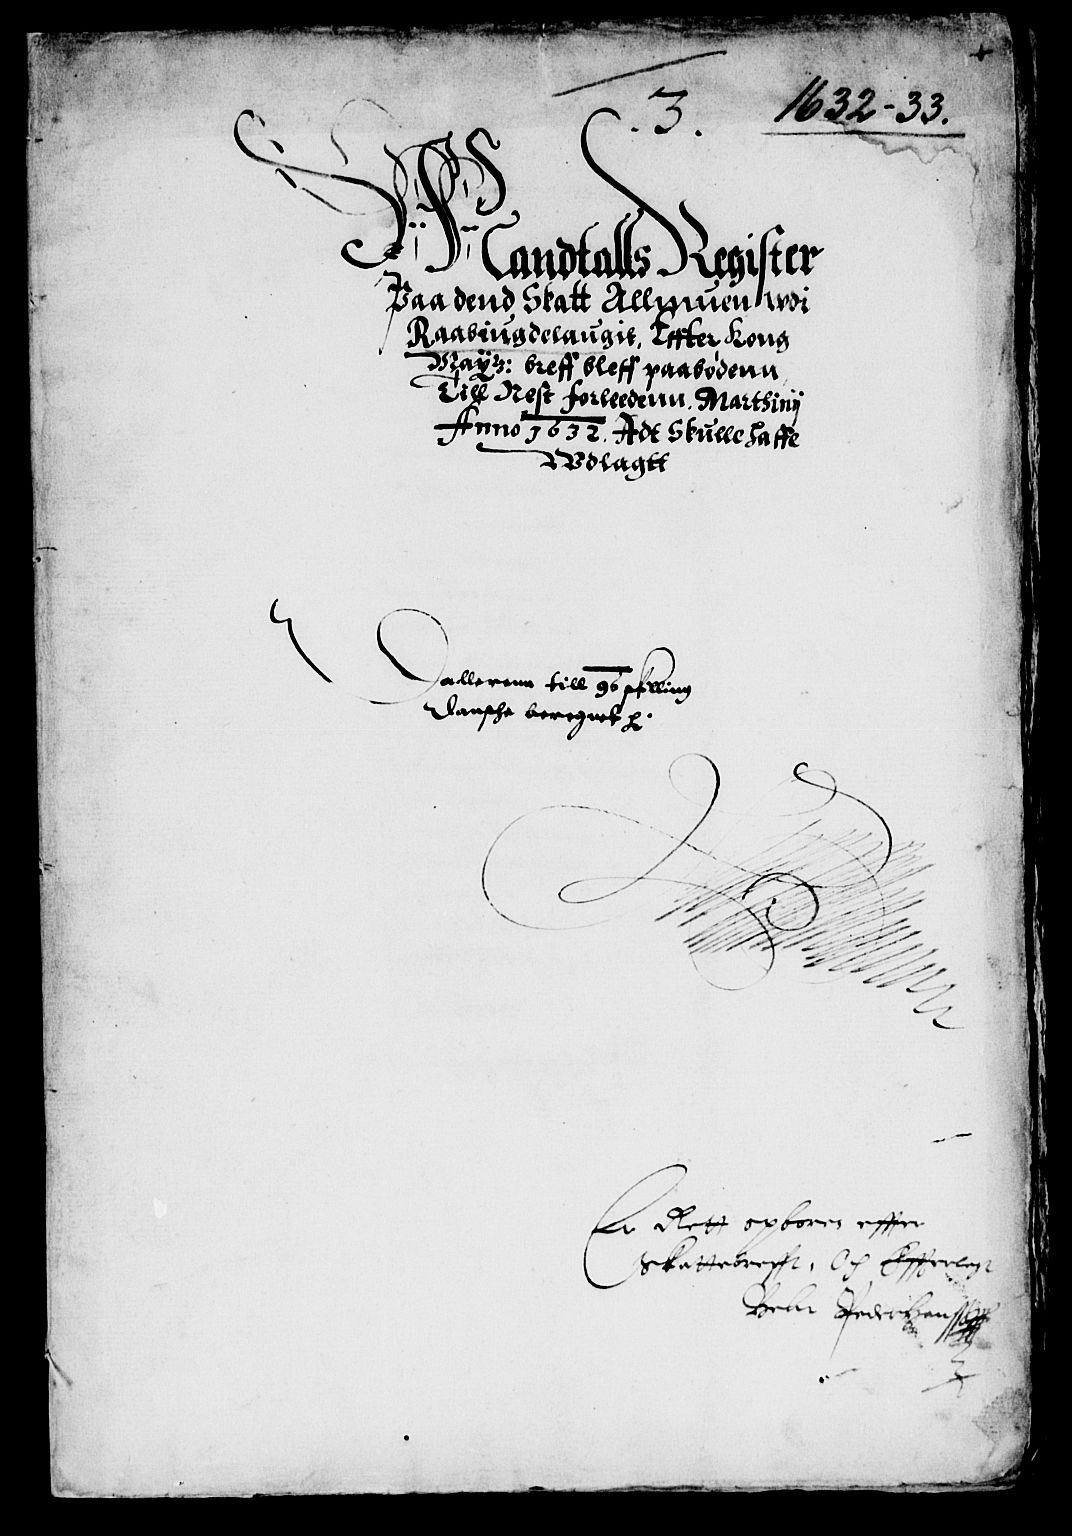 1632-33.
.3.
Mandtalls Register
Paa dend Skatt Allmuen wdi
Raabiugdelaugit, Effter Kong
Mayts: breff bleff paabødenn
Till Nest forleedenn. Marthinij
Anno 1632. Adt Skulle haffe
Wdlagtt
Dallerenn till 96 skilling
Dansche beregnet
Er Rett opboren effter
Skattebrefft, Och Efferlegt
Pedersenn